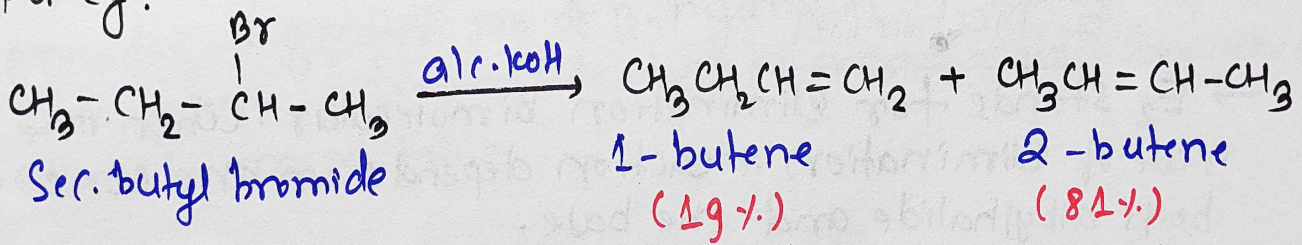 Br
CH3 - CH2 - CH - CH3 alc. KOH CH3 CH2 CH = CH2 + CH3 CH = CH - CH3
Sec. butyl bromide 1 - butene 2 - butene
(19 %) (81 %)